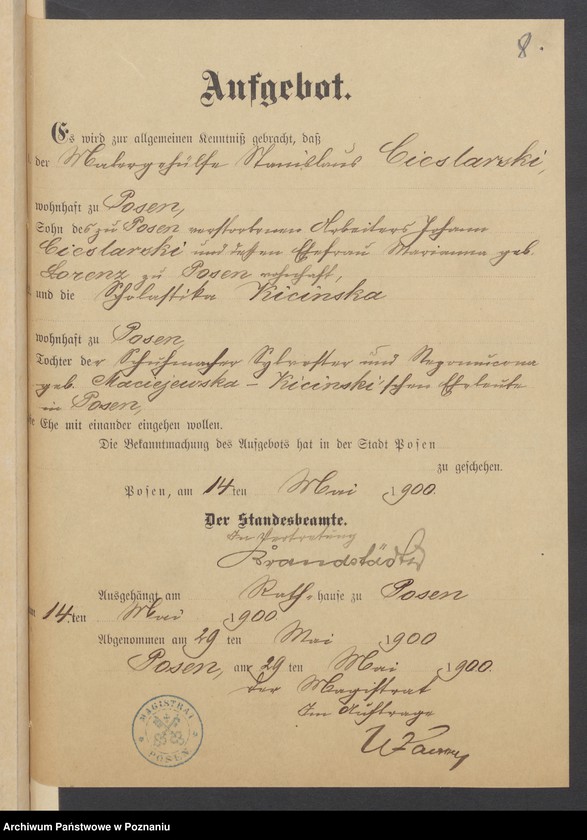 8.
Aufgebot.
Es wird zur allgemeinen Kenntniß gebracht, daß
der Malergehülfe Stanislaus Cieslarski,
wohnhaft zu Posen,
Sohn des zu Posen verstorbenen Arbeiters Johann
Cieslarski und dessen Ehefrau Marianna geb.
Lorenz zu Posen wohnhaft,
und die Scholastika Kicinska
wohnhaft zu Posen,
Tochter der Schuhmacher Sylvester und Nepomucena
geb. Maciejewska – Kicinski'schen Eheleute
in Posen,
die Ehe mit einander eingehen wollen.
Die Bekanntmachung des Aufgebots hat in der Stadt Posen
zu geschehen.
Posen, am 14ten Mai 1900.
Der Standesbeamte.
In Vertretung
Brandstädter
Ausgehängt am Rath-hause zu Posen
am 14.ten Mai 1900
Abgenommen am 29 ten Mai 1900
Posen, am 29 ten Mai 1900.
Der Magistrat
Im Auftrage
MAGISTRAT
POSEN
Archiwum Państwowe w Poznaniu